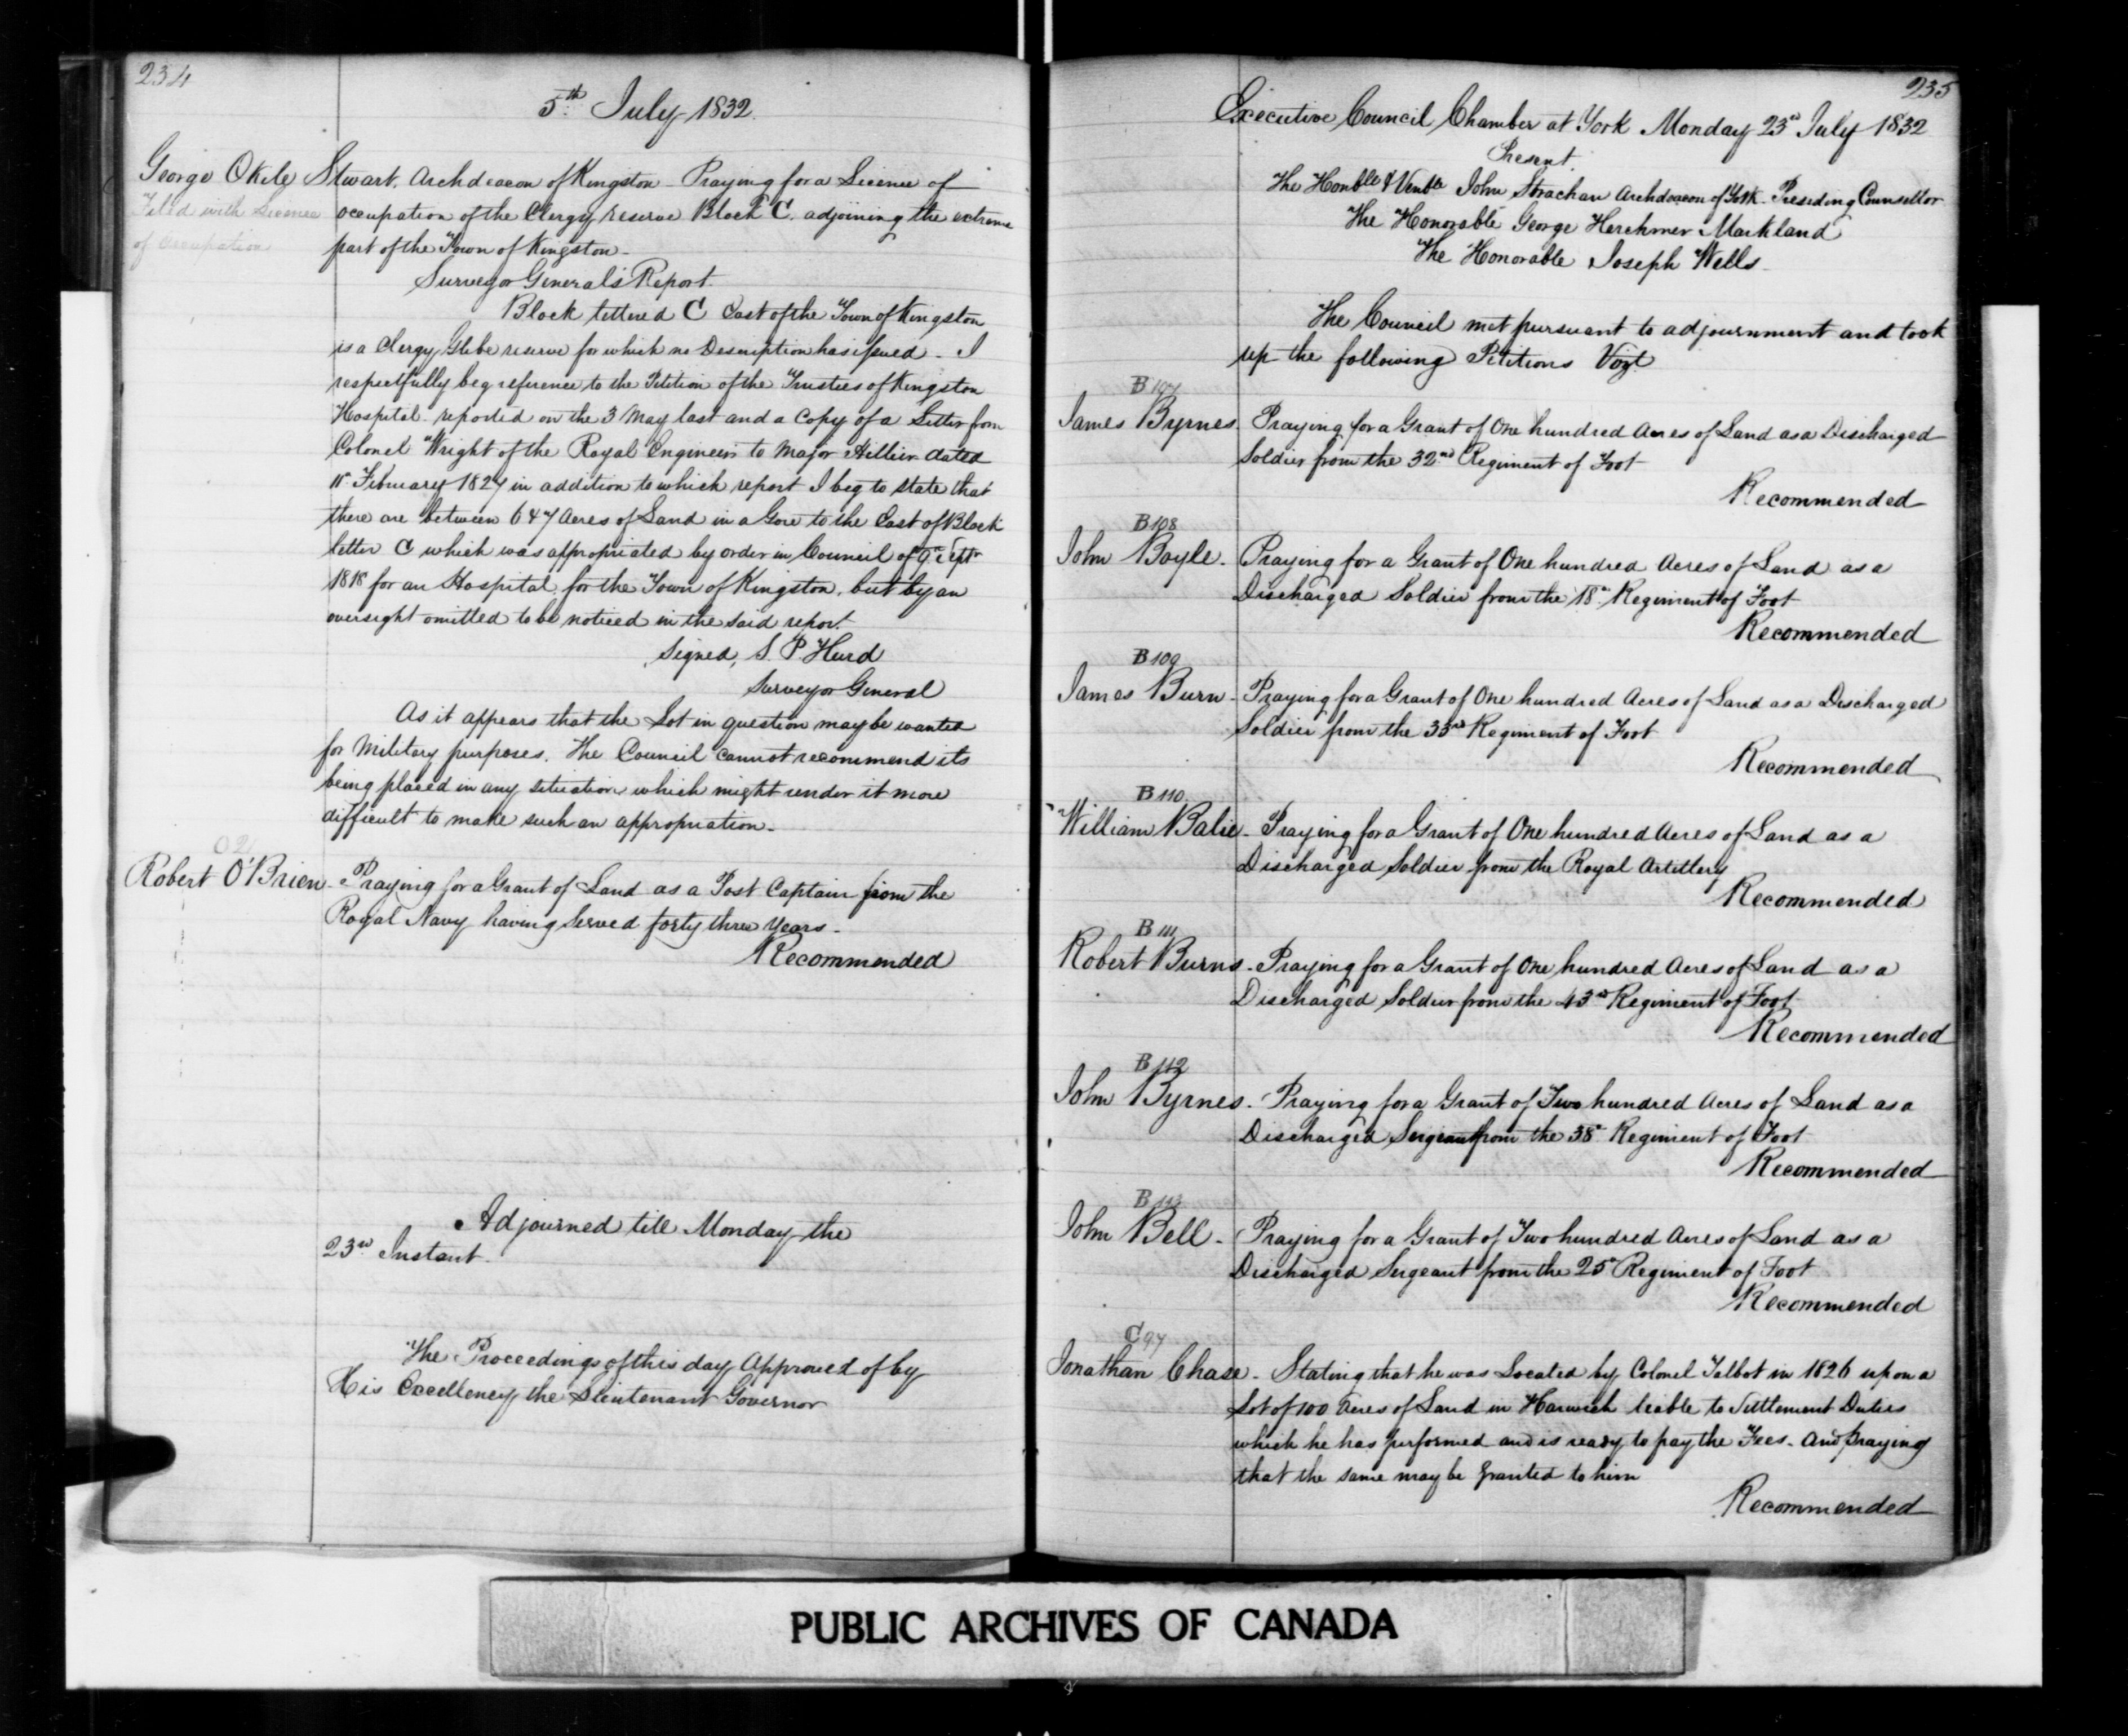 234
5th July 1832.
George Okile Stuart. Archdeacon of Kingston - Praying for a License of
Filed with License
of Occupation
occupation of the Clergy reserve Block C. adjoining the extreme
part of the Town of Kingston -
Surveyor General's Report.
Block lettered C East of the Town of Kingston
is a Clergy Glebe reserve for which no Description has issued - I
respectfully beg reference to the Petition of the Trustees of Kingston
Hospital reported on the 3 May last and a Copy of a Letter from
Colonel Wright of the Royal Engineers to Major Hillier dated
February 1827 in addition to which report I beg to state that
there are between 6 & 7 Acres of Land in a Gore to the East of Block
letter C which was appropriated by order in Council of 9th Sept
1818 for an Hospital for the Town of Kingston, but by an
oversight omitted to be noticed in the said report
Signed, S. P. Hurd
Surveyor General
As it appears that the Lot in question may be wanted
for Military purposes. The Council cannot recommend its
being placed in any situation which might render it more
difficult to make such an appropriation -
O 21
Robert O'Brien - Praying for a Grant of Land as a Post Captain from the
Royal Navy having Served forty three Years -
Recommended
Adjourned till Monday the
23rd Instant.
The Proceedings of this day Approved of by
His Excellency the Lieutenant Governor
235
Executive Council Chamber at York Monday 23rd July 1832
Present.
The Honble & Venble John Strachan Archdeacon of York - Presiding Counsellor
The Honorable George Herchmer Markland
The Honorable Joseph Wells -
The Council met pursuant to adjournment and took
up the following Petitions Vizt
B 107
James Byrnes. Praying for a Grant of One hundred Acres of Land as a Discharged
Soldier from the 32nd Regiment of Foot
Recommended
B 108
John Boyle - Praying for a Grant of One hundred Acres of Land as a
Discharged Soldier from the 18th Regiment of Foot
Recommended
B 109
James Burn - Praying for a Grant of One hundred Acres of Land as a Discharged
Soldier from the 33rd Regiment of Foot
Recommended
B 110
William Balie - Praying for a Grant of One hundred Acres of Land as a
Discharged Soldier from the Royal Artillery
Recommended
B 111
Robert Burns - Praying for a Grant of One hundred Acres of Land as a
Discharged Soldier from the 43rd Regiment of Foot
Recommended
B 112
John Byrnes - Praying for a Grant of Two hundred Acres of Land as a
Discharged Sergeant from the 38th Regiment of Foot
Recommended
B 113
John Bell - Praying for a Grant of Two hundred Acres of Land as a
Discharged Sergeant from the 25th Regiment of Foot
Recommended
C 97
Jonathan Chase - Stating that he was Located by Colonel Talbot in 1826 upon a
Lot of 100 Acres of Land in Harwich liable to Settlement Duties
which he has performed and is ready to pay the Fees - And Praying
that the same may be Granted to him
Recommended
PUBLIC ARCHIVES OF CANADA